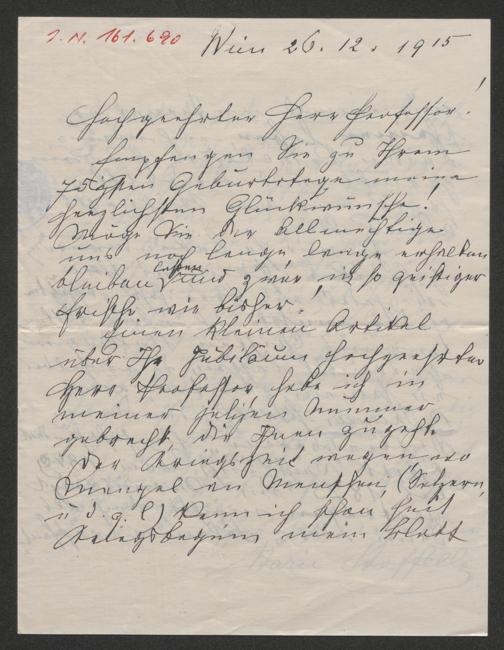 I. N. 161.690
Wien 26. 12. 1915
Hochgeehrter Herr Professor!
Empfangen Sie zu Ihrem
75igsten Geburtstage meine
herzlichsten Glückwünsche!
Möge Sie der Allmächtige
uns noch lange lange erhalten
bleiben lassen und zwar in so geistiger
Frische wie bisher!
Einen kleinen Artikel
über Ihr Jubiläum hochgeehrter
Herr Professor habe ich in
meiner Nummer
gebracht, die Ihnen zugeht.
Der Kriegszeit wegen wo
Mangel an Menschen, (Setzern,
u. d. g. l) kann ich schon seit
Kriegsbeginn mein Blatt